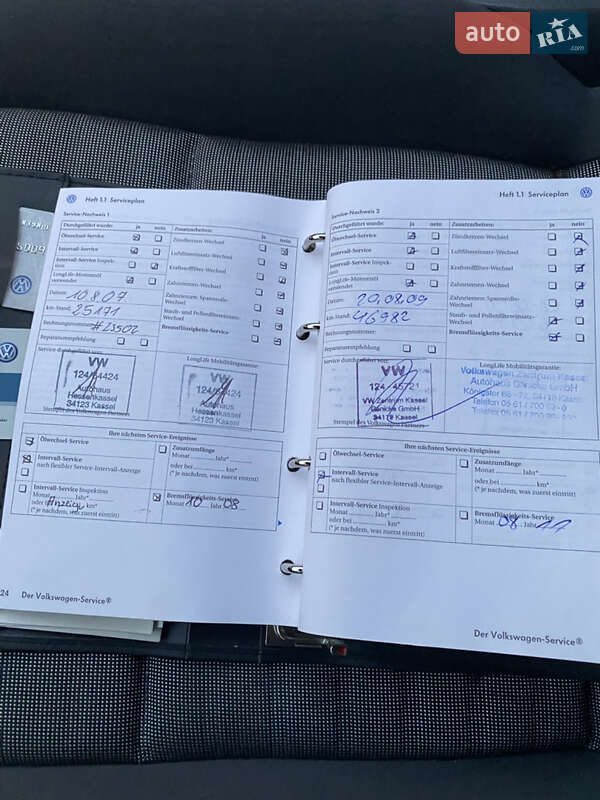 auto RIA.com
Heft 1.1 Serviceplan
Service-Nachweis 1
Durchgeführt wurde: ja nein Zusatzarbeiten: ja nein
Ölwechsel-Service
Intervall-Service
Intervall-Service Inspektion
LongLife-Motorenöl verwendet
Zündkerzen-Wechsel
Luftfiltereinsatz-Wechsel
Kraftstofffilter-Wechsel
Zahnriemen-Wechsel
Zahnriemen-Spannrolle-Wechsel
Staub- und Pollenfiltereinsatz-Wechsel
Bremsflüssigkeits-Service
Datum: 10.8.07
km-Stand: 25171
Rechnungsnummer: #23502
Reparaturempfehlung
Service durchgeführt von:
LongLife Mobilitätsgarantie:
VW
124/94424
Autohaus
Hessenkassel
34123 Kassel
Stempel des Volkswagen Partners
Ihre nächsten Service-Ereignisse
Ölwechsel-Service
Intervall-Service
nach flexibler Service-Intervall-Anzeige
Zusatzumfänge
Monat Jahr*
oder bei km*
(* je nachdem, was zuerst eintritt)
Intervall-Service Inspektion
Monat Jahr*
oder bei Anzeige km*
(* je nachdem, was zuerst eintritt)
Bremsflüssigkeits-Service
Monat 10 Jahr 08
24 Der Volkswagen-Service®
Heft 1.1 Serviceplan
Service-Nachweis 2
Durchgeführt wurde: ja nein Zusatzarbeiten: ja nein
Ölwechsel-Service
Intervall-Service
Intervall-Service Inspektion
LongLife-Motorenöl verwendet
Zündkerzen-Wechsel
Luftfiltereinsatz-Wechsel
Kraftstofffilter-Wechsel
Zahnriemen-Wechsel
Zahnriemen-Spannrolle-Wechsel
Staub- und Pollenfiltereinsatz-Wechsel
Bremsflüssigkeits-Service
Datum: 20.08.09
km-Stand: 46982
Rechnungsnummer:
Reparaturempfehlung
Service durchgeführt von:
LongLife Mobilitätsgarantie:
VW
124/45721
VW Zentrum Kassel
GmbH
Kassel
Volkswagen Zentrum Kassel
Autohaus GmbH
Stempel des Volkswagen Partners
Ihre nächsten Service-Ereignisse
Ölwechsel-Service
Intervall-Service
nach flexibler Service-Intervall-Anzeige
Zusatzumfänge
Monat Jahr*
oder bei km*
(* je nachdem, was zuerst eintritt)
Intervall-Service Inspektion
Monat Jahr*
oder bei km*
(* je nachdem, was zuerst eintritt)
Bremsflüssigkeits-Service
Monat 08 Jahr 11
Der Volkswagen-Service®